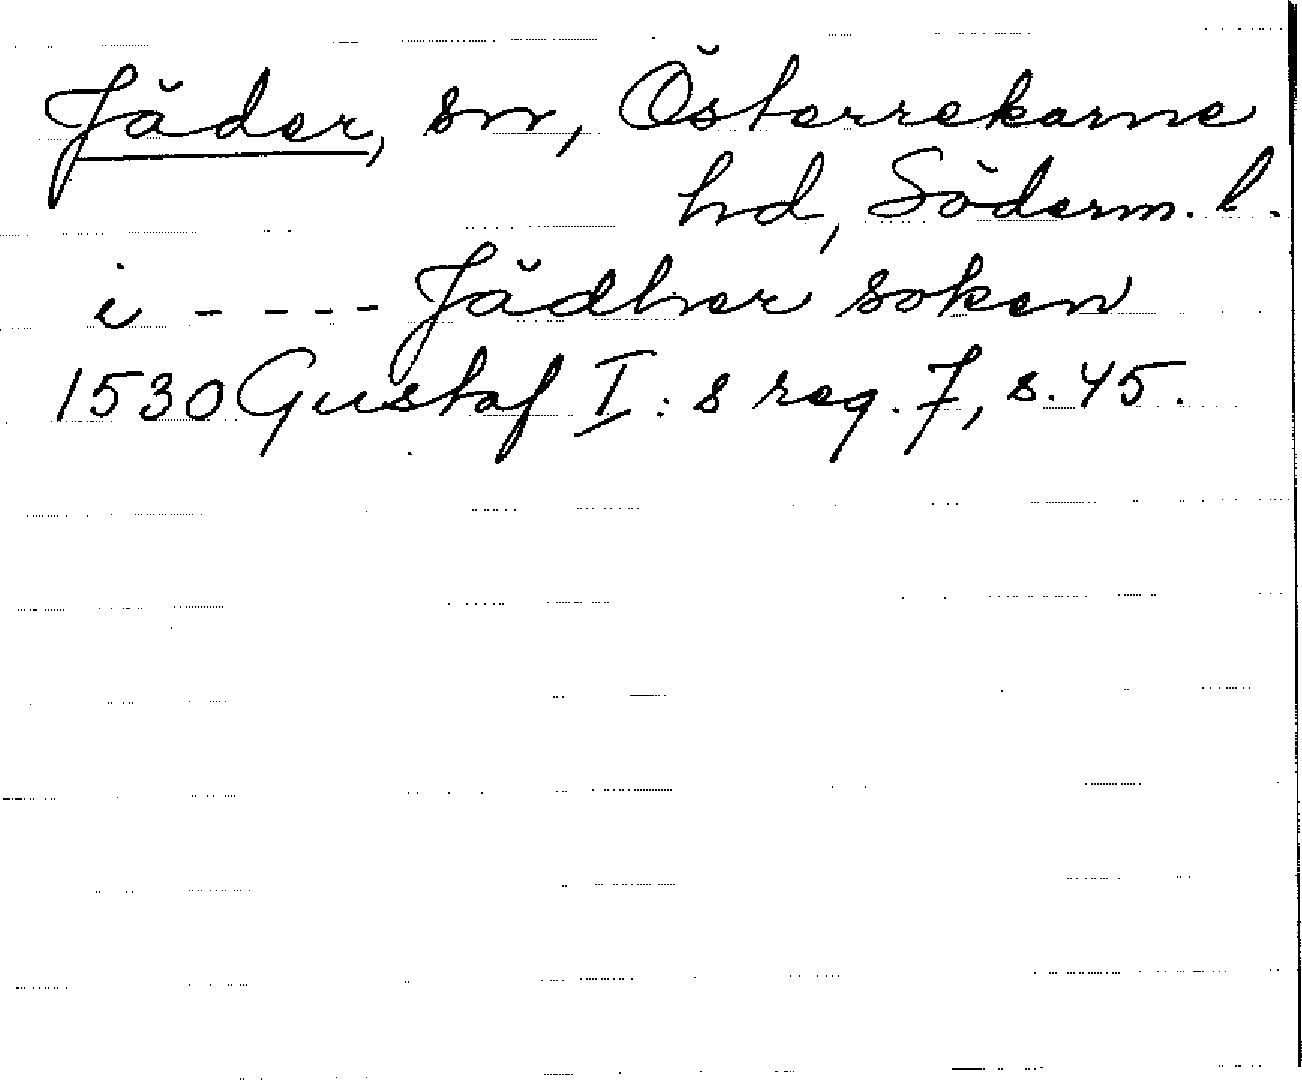 Jäder, sn, Österrekarne
hd, Söderm. l.
i ---- Jädher soken
1530 Gustaf I:s reg. 7, s. 45.